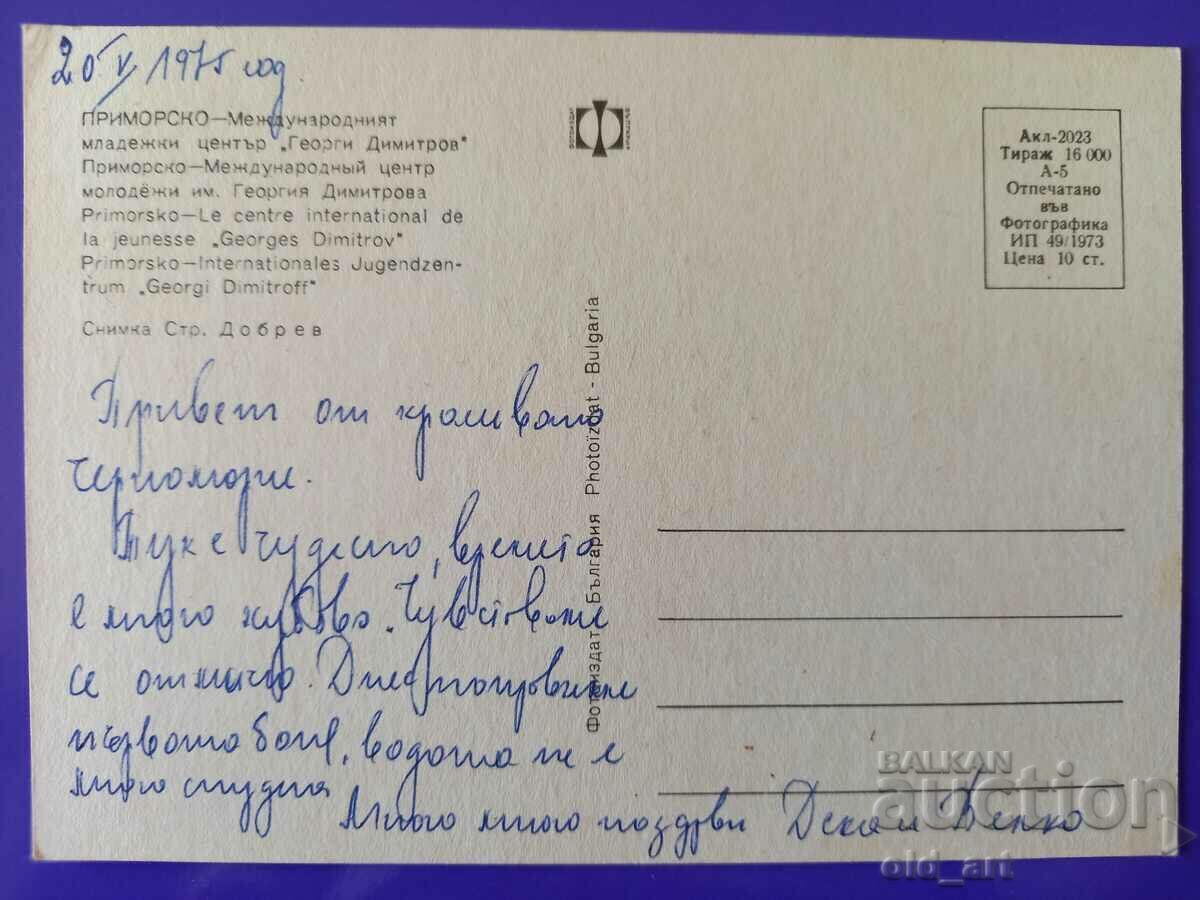 20 V 1975 год.
ПРИМОРСКО—Международният
младежки център „Георги Димитров"
Приморско—Международный центр
молодёжи им. Георгия Димитрова
Primorsko—Le centre international de
la jeunesse „Georges Dimitrov"
Primorsko—Internationales Jugendzen-
trum „Georgi Dimitroff"
Снимка Стр. Добрев
Акл-2023
Тираж 16 000
А-5
Отпечатано
във
Фотографика
ИП 49/1973
Цена 10 ст.
Фотоиздат България Photoizdat - Bulgaria
Привет от красивото
Черноморие.
Тук е чудесно, времето
е много хубаво. Чувстваме
се отлично. Днес направихме
първото баня, водата не е
много студена
Много много поздрави Деска и Венко
BALKAN
auction
old_art